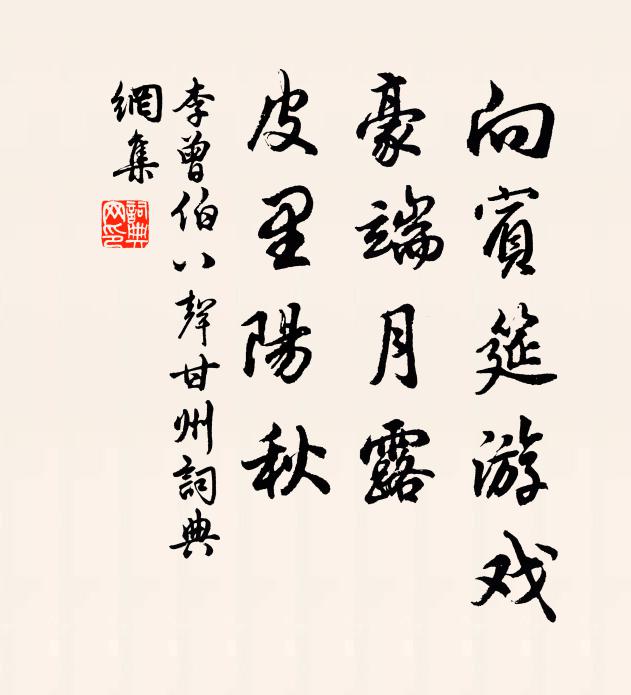 向賓筵游戏
豪端月露
皮里陽秋
李曾伯八聲甘州詞典
網集
詞典
网印